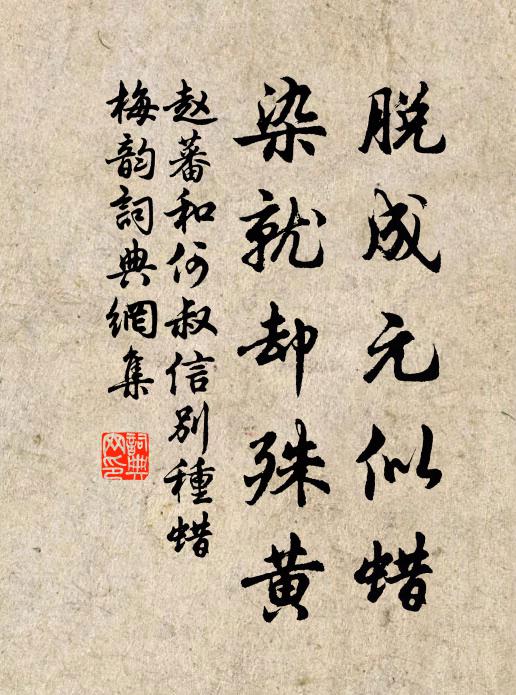 脱成元似蜡
染就却殊黄
赵蕃和何叔信别種蜡
梅韵詞典網集
詞典網印